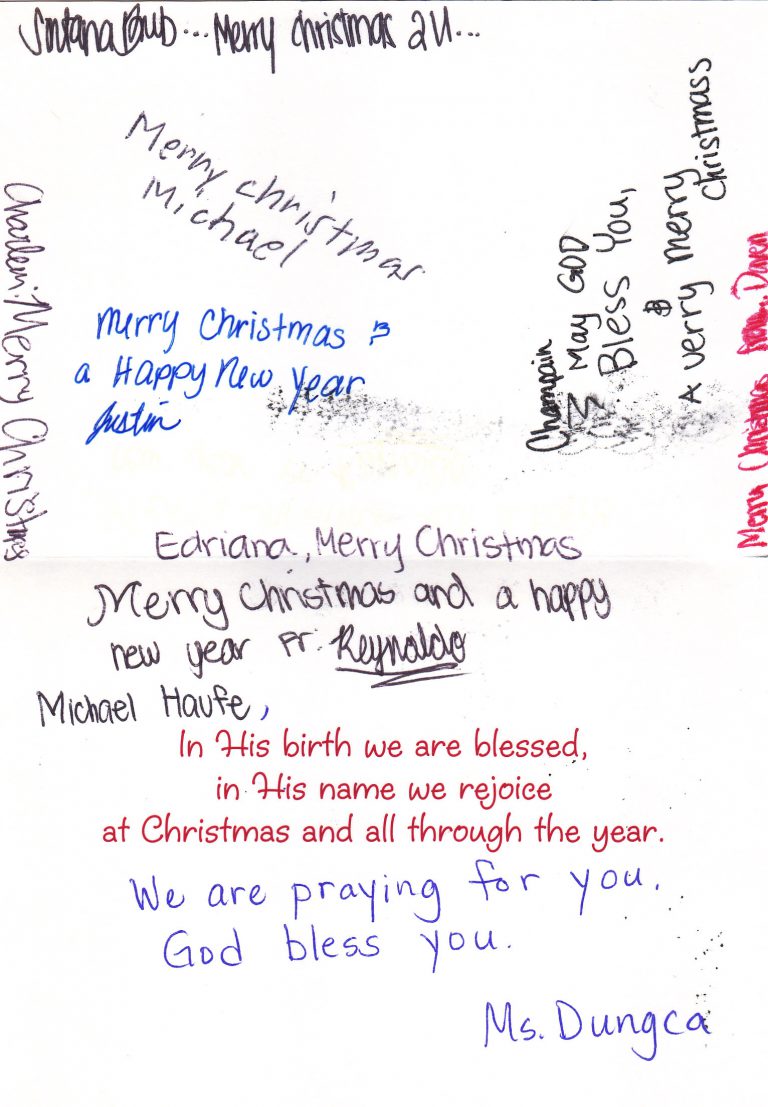 Sintana Bub... Merry christmas 2U...
Merry christmas
Michael
Charleni: Merry Christmas
Merry Christmas &
a Happy New Year
Justin
Champain
May GOD
Bless You,
&
A verry merry
christmass
Merry Christmas from.. Daven
Edriana, Merry Christmas
Merry Christmas and a happy
new year Fr. Reynaldo
Michael Haufe,
In His birth we are blessed,
in His name we rejoice
at Christmas and all through the year.
We are praying for you.
God bless you.
Ms. Dungca